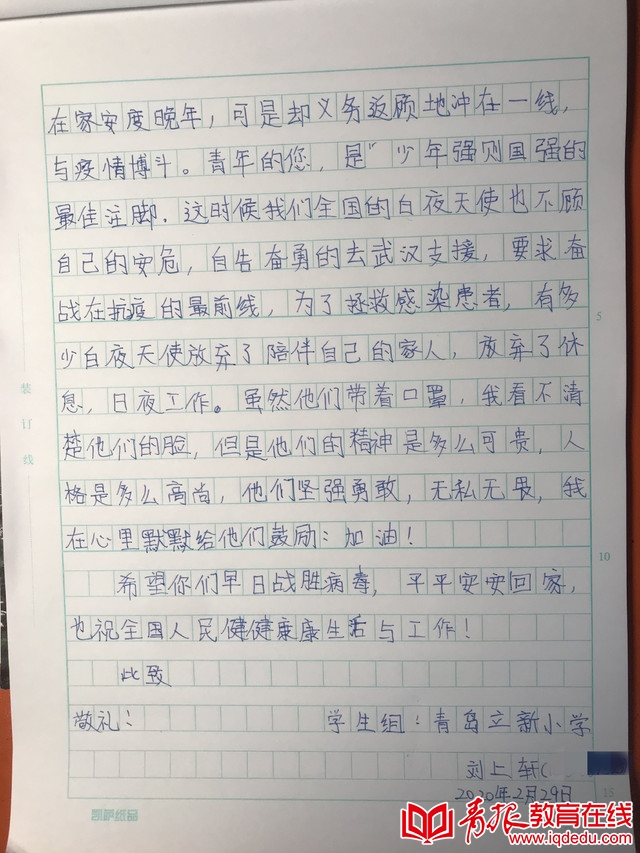 在家安度晚年，可是却义务返顾地冲在一线，
与疫情博斗。青年的您，是"少年强则国强的
最佳注脚．这时候我们全国的白夜天使也不顾
自己的安危，自告奋勇的去武汉支援，要求奋
战在抗疫的最前线，为了拯救感染患者，有多
少白夜天使放弃了陪伴自己的家人，放弃了休
息，日夜工作。虽然他们带着口罩，我看不清
楚他们的脸，但是他们的精神是多么可贵，人
格是多么高尚，他们坚强勇敢，无私无畏，我
在心里默默给他们鼓励：加油！
希望你们早日战胜病毒，平平安安回家，
也祝全国人民健健康康生活与工作！
此致
敬礼！ 学生组：青岛立新小学
刘上轩(
2020年2月29日
装订线
5
10
15
凯萨纸品
青报教育在线
www.iqdedu.com